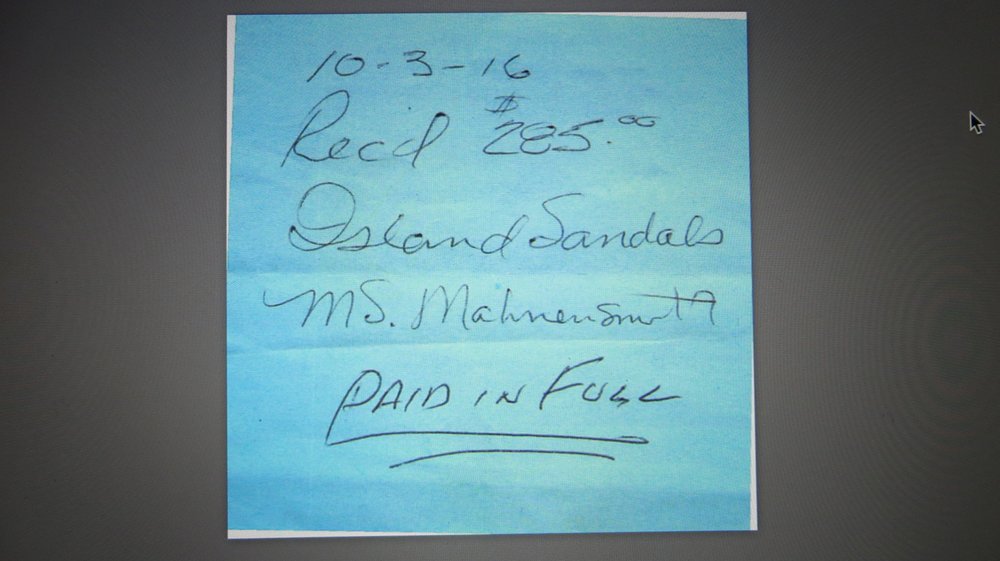 10-3-16
Rec'd $285.00
Island Sandals
MS. Mahnensmith
PAID IN FULL